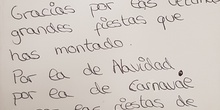 Gracias por las
grandes fiestas que
has montado.
Por la de Navidad
por la de Carnaval
fiestas de